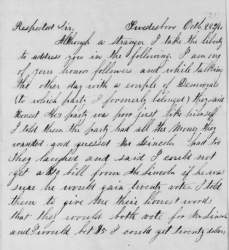 Respected Sir,
Although a stranger I take the liberty
to address you in the following I am one
of your humble followers and while talking
the other day with a couple of Democrats
(to which party I formerly belonged) they said
Honest Abe party was poor first take himself
I told them the party had all the money they
wanted and guessed Mr Lincoln had too
they laughed and said I could not
get a $20 bill from Mr Lincoln if he was
sure he would gain twenty votes I told
them to give me their honest word
that they would both vote for Mr Lincoln
and I would bet $5 I could get twenty dollars